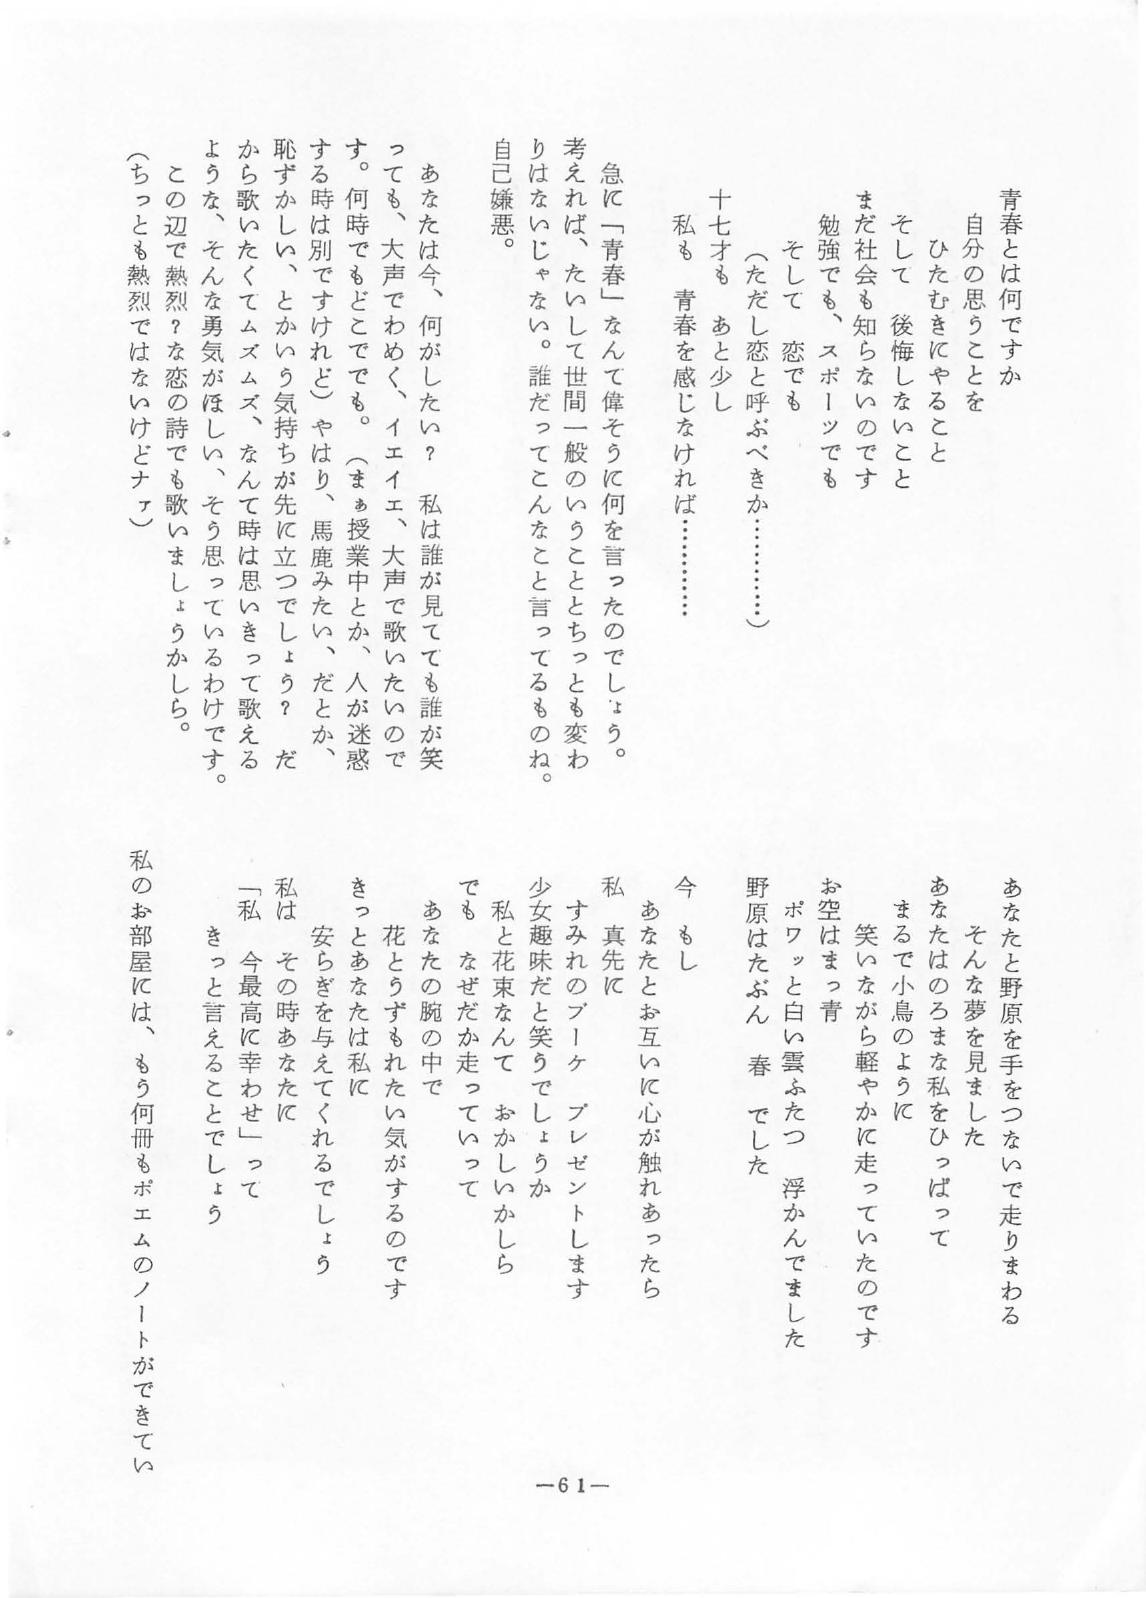 青春とは何ですか
自分の思うことを
ひたむきにやること
そして　後悔しないこと
まだ社会も知らないのです
勉強でも、スポーツでも
そして　恋でも
（ただし恋と呼ぶべきか…………）
十七才も　あと少し
私も　青春を感じなければ…………
急に「青春」なんて偉そうに何を言ったのでしょう。
考えれば、たいして世間一般のいうこととちっとも変わ
りはないじゃない。誰だってこんなこと言ってるものね。
自己嫌悪。
あなたは今、何がしたい？　私は誰が見てても誰が笑
っても、大声でわめく、イエイエ、大声で歌いたいので
す。何時でもどこででも。（まぁ授業中とか、人が迷惑
する時は別ですけれど）やはり、馬鹿みたい、だとか、
恥ずかしい、とかいう気持ちが先に立つでしょう？　だ
から歌いたくてムズムズ、なんて時は思いきって歌える
ような、そんな勇気がほしい、そう思っているわけです。
この辺で熱烈？な恋の詩でも歌いましょうかしら。
（ちっとも熱烈ではないけどナァ）
あなたと野原を手をつないで走りまわる
そんな夢を見ました
あなたはのろまな私をひっぱって
まるで小鳥のように
笑いながら軽やかに走っていたのです
お空はまっ青
ポワッと白い雲ふたつ　浮かんでました
野原はたぶん　春　でした
今　もし
あなたとお互いに心が触れあったら
私　真先に
すみれのブーケ　プレゼントします
少女趣味だと笑うでしょうか
私と花束なんて　おかしいかしら
でも　なぜだか走っていって
あなたの腕の中で
花とうずもれたい気がするのです
きっとあなたは私に
安らぎを与えてくれるでしょう
私は　その時あなたに
「私　今最高に幸わせ」って
きっと言えることでしょう
私のお部屋には、もう何冊もポエムのノートができてい
―61―